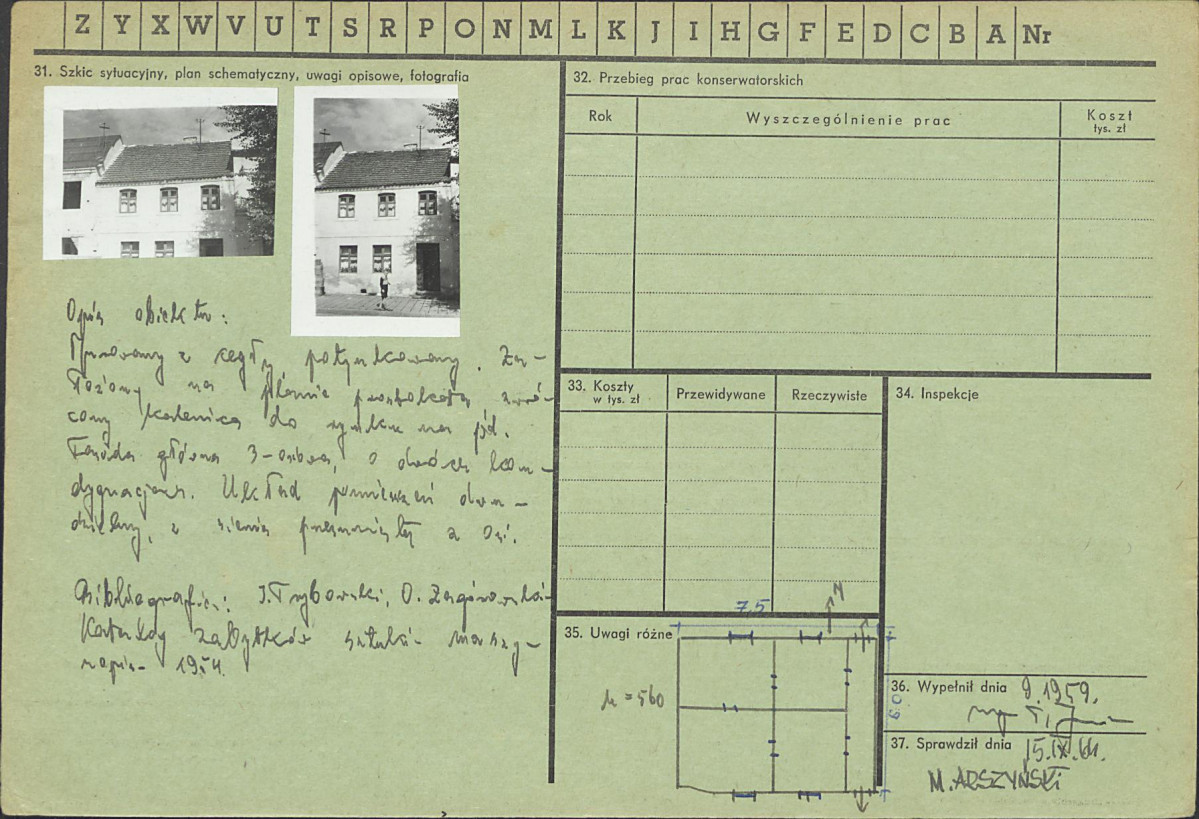 Z Y X W V U T S R P O N M L K J I H G F E D C B A Nr
31. Szkic sytuacyjny, plan schematyczny, uwagi opisowe, fotografia
Opis obiektu:
Murowany z cegły potynkowany. Za-
łożony na planie prostokąta, zwró-
cony kalenicą do rynku na płd.
Fasada główna 3-osiowa, o dwóch kon-
dygnacjach. Układ pomieszczeń dwu-
dzielny, z sienią przesuniętą z osi.
Bibliografia: J. Trybowski, O. Zagórowski-
Katalog zabytków sztuki- maszy-
nopis- 1954.
32. Przebieg prac konserwatorskich
Rok
Wyszczególnienie prac
Koszt
tys. zł
33. Koszty
w tys. zł
Przewidywane
Rzeczywiste
34. Inspekcje
35. Uwagi różne
7,5
N
6.0
=560
36. Wypełnił dnia 9.1959.
mgr
37. Sprawdził dnia 15.IX.61.
M. ARSZYŃSKI